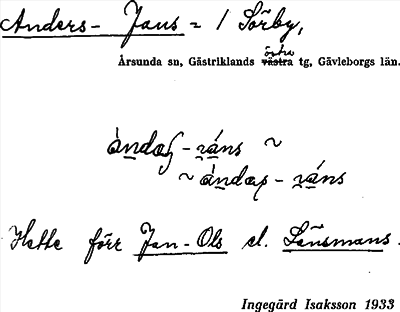 Anders-Jans = / Sörby,
östra
Årsunda sn, Gästriklands västra tg, Gävleborgs län.
Hette förr Jan-Ols el. Länsmans.
Ingegärd Isaksson 1933